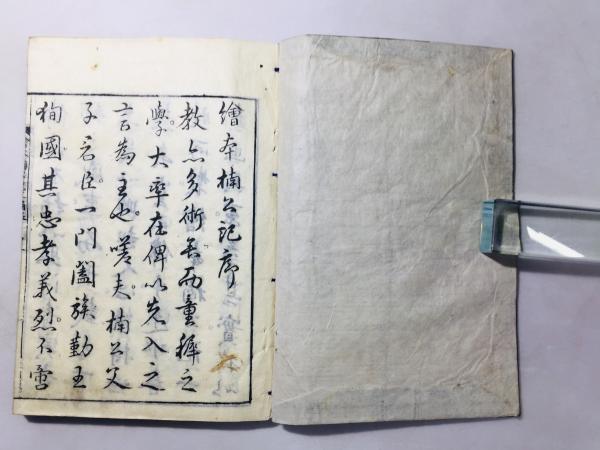 繪本楠公記序
教亦多術矣而童穉之
學。大率在俾以先入之
言為主也。嗟夫。楠公父
子君臣。一門闔族勤王
狥國其忠孝義烈。不啻